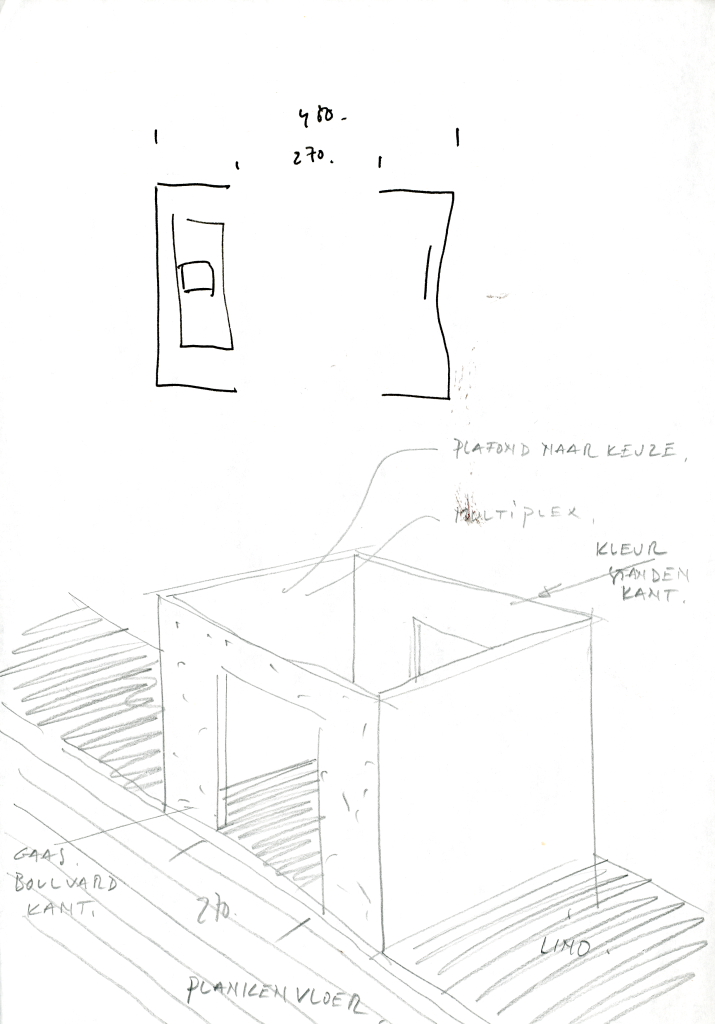 480.
270.
PLAFOND NAAR KEUZE.
MULTIPLEX.
KLEUR
STANDEN
KANT.
GAAS.
BOULVARD
KANT.
270.
LINO.
PLANKEN VLOER.